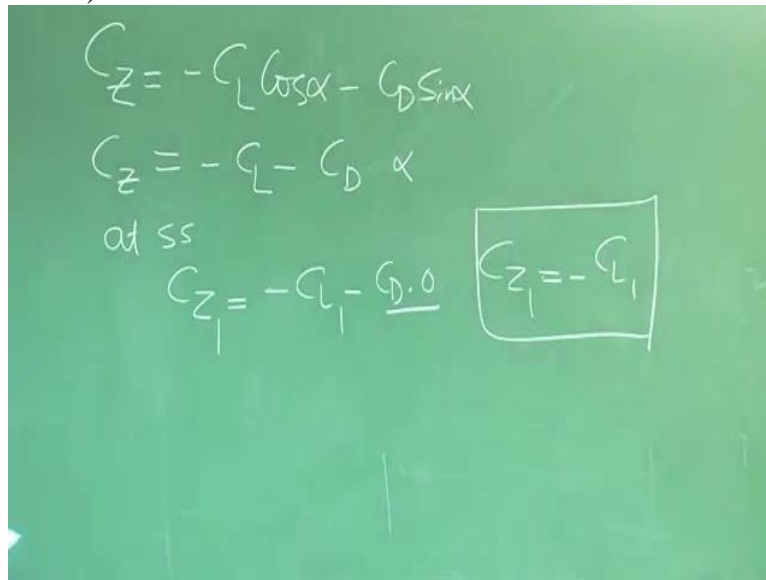 C_Z = - C_L Cosα - C_D Sinα
C_Z = - C_L - C_D α
at ss
C_Z₁ = - C_L₁ - C_D . 0
C_Z₁ = - C_L₁